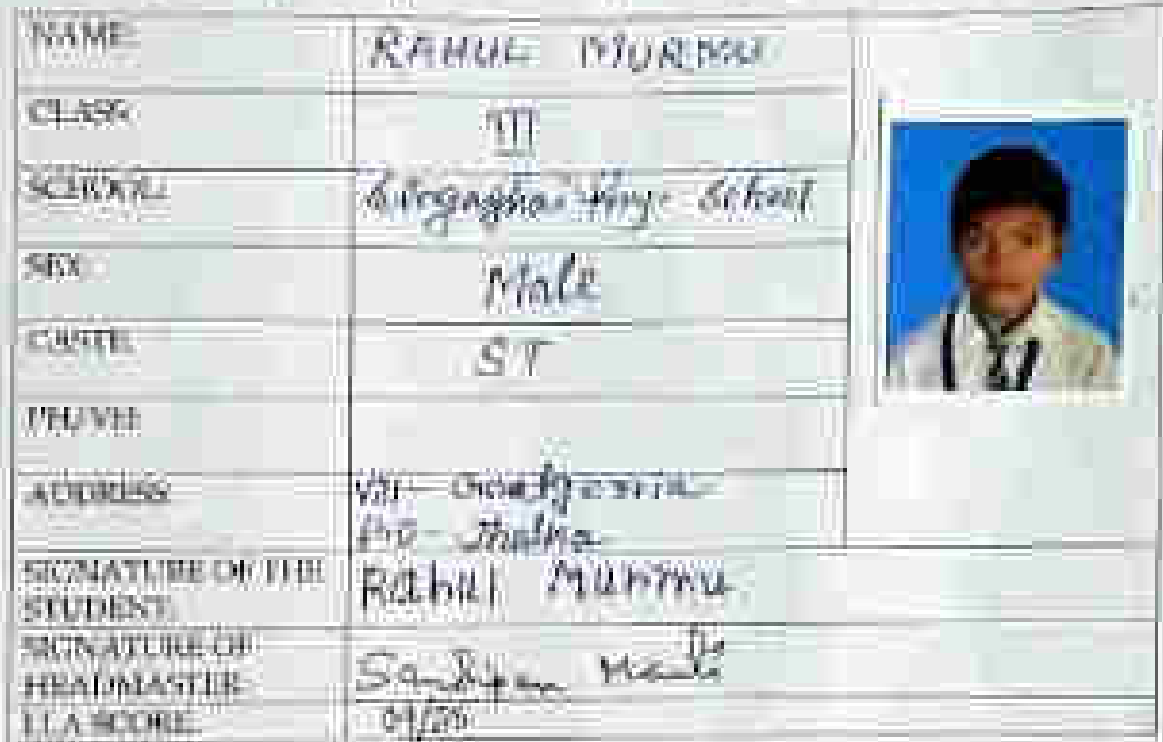 NAME: RAHUL MURMU
CLASS: III
SCHOOL: School
SEX: Male
CASTE: ST
PH/VH:
ADDRESS: Vill-
PO- Jhalna
SIGNATURE OF THE STUDENT: Rahul Murmu
SIGNATURE OF HEADMASTER: Sandipan
LLA SCORE: